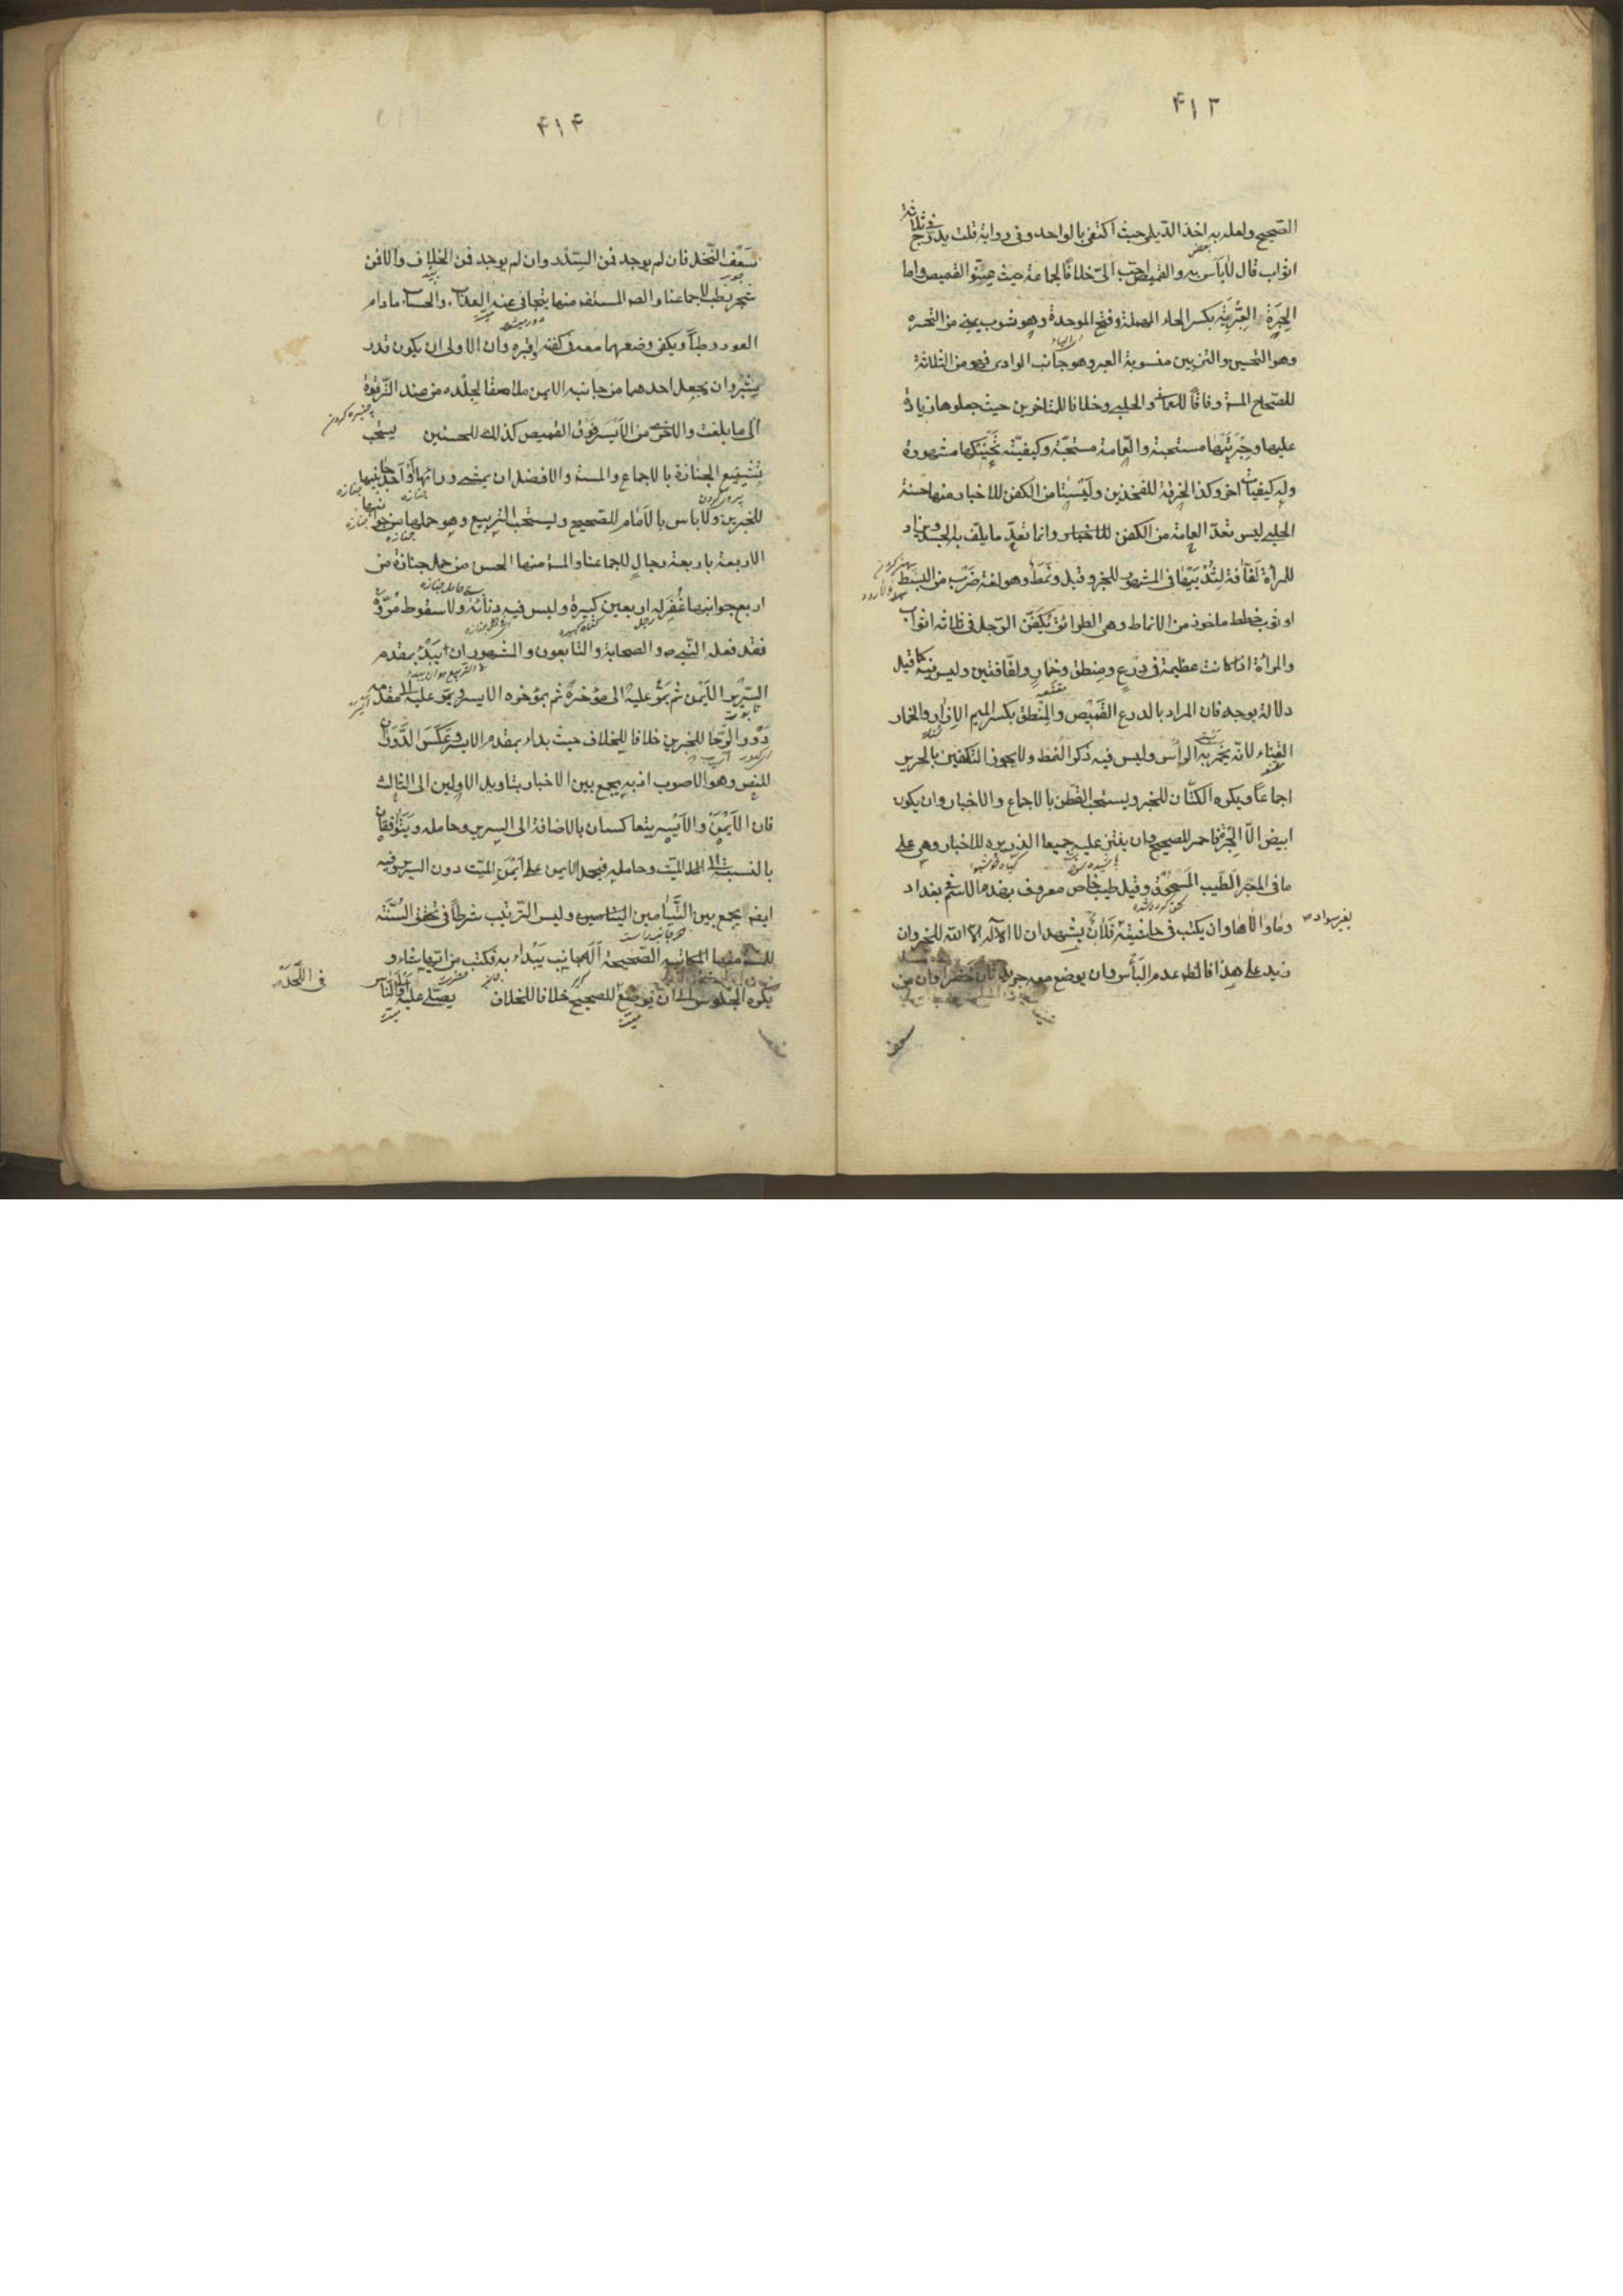 ۴۱۳
الصحيح ولعله به اخذ الديلمي حيث اكتفى بالواحد وفي رواية قلت يدرج في ثلاثة
اثواب قال لا بأس به والقميص احب الىّ خلافا لجماعة حيث عينوا القميص واما
الحبرة العبرية بكسر الحاء المهملة وفتح الموحدة وهو ثوب يمنى من التحبير
وهو التحسين والتزيين منسوبة العبر وهو جانب الوادى فهو من الثلاثة
للصحاح المستفـ وفاقا للعماني والحلبي وخلافا للمتاخرين حيث جعلوها زيادة
عليها وحبرتها مستحبة والعمامة مستحبة وكيفيته تحنيكها مشهورة
وله كيفيات اخر وكذا الخرقة للفخذين وليستا من الكفن للاخبار منها حسنة
الحلبي ليس تعد العمامة من الكفن وانما تعد ما يلف به الجسد ويزاد
للمرأة لفافة لثدييها في المشهور للخبر وقيل ونمط وهو لغة ضرب من البسط
او ثوب خطط ماخوذ من الانماط وهى الطرائق يكفن الرجل فى ثلاثة اثواب
والمرأة اذا كانت عظيمة فى درع ومنطق وخمار ولفافتين وليس فيه كما قيل
دلالة بوجه فان المراد بالدرع القميص والمنطق بكسر الميم الازار والخمار
القناع لانه يخمر به الرأس وليس فيه ذكر النمط ولا يجوز التكفين بالحرير
اجماعا ويكره الكتان للخبر ويستحب القطن بالاجماع والاخبار وان يكون
ابيض الا الحبرة فاحمر للصحيح وان ينثر عليه جميعا الذريرة للاخبار وهى على
ما فى المعتبر الطيب المسحوق وقيل طيب خاص معروف بهذا الاسم في بغداد
وما والاها وان يكتب فى حاشيته فلان يشهد ان لا اله الا الله للخبر وان
بغير سواد
زيد على هذا فالظ عدم البأس وان يوضع معه جريدتان خضراوان من
سعف
۴۱۴
سعف النخل فان لم يوجد فمن السدر وان لم يوجد فمن الخلاف والا فمن
شجر رطب لاجماعنا والصحـ المستفـ منها يتجافى عنه العذاب والحساب ما دام
العود رطبا ويكفى وضعهما معه فى كفنه او قبره وان الاولى ان يكون قدر
شبر وان يجعل احدهما من جانبه الايمن ملاصقا لجلده من عند الترقوة
الى ما بلغت والاخرى من الايسر فوق القميص كذلك للحسنين يستحب
تشييع الجنازة بالاجماع والمستفـ والافضل ان يمشى ورائها او احد جانبيها
للخبرين ولا باس بالامام للصحيح ويستحب التربيع وهو حملها من جوانبها
الاربعة باربعة رجال لاجماعنا والمستفـ منها الحسن من حمل جنازة من
اربع جوانبها غفر له اربعين كبيرة وليس فيه دنائة ولا سقوط مروة
فقد فعله النبى ص والصحابة والتابعون والمشهور ان يبدء بمقدم
السرير الايمن ثم يمر عليه الى مؤخره ثم بمؤخره الايسر ويمر عليه الى مقدمه
دور الرحا للخبرين خلافا للخلاف حيث بداء بمقدم الايسر وعكس الدور
للنص وهو الاصوب اذ به يجمع بين الاخبار بتاويل الاولين الى الثالث
فان الايمن والايسر يتعاكسان بالاضافة الى السرير وحامله ويتوافقان
بالنسبة الى الميت وحامله فيحمل الايمن على ايمن الميت دون السرير وفيه
ايضا يجمع بين التيامين وليس الترتيب شرطا فى تحقق السنة
للمستفـ منها المكاتبة الصحيحة اى جانب يبداء به فكتب من ايها شاء و
يكره الجلوس الى ان يوضع للصحيح خلافا للخلاف يصلى عليه
فى اللحد